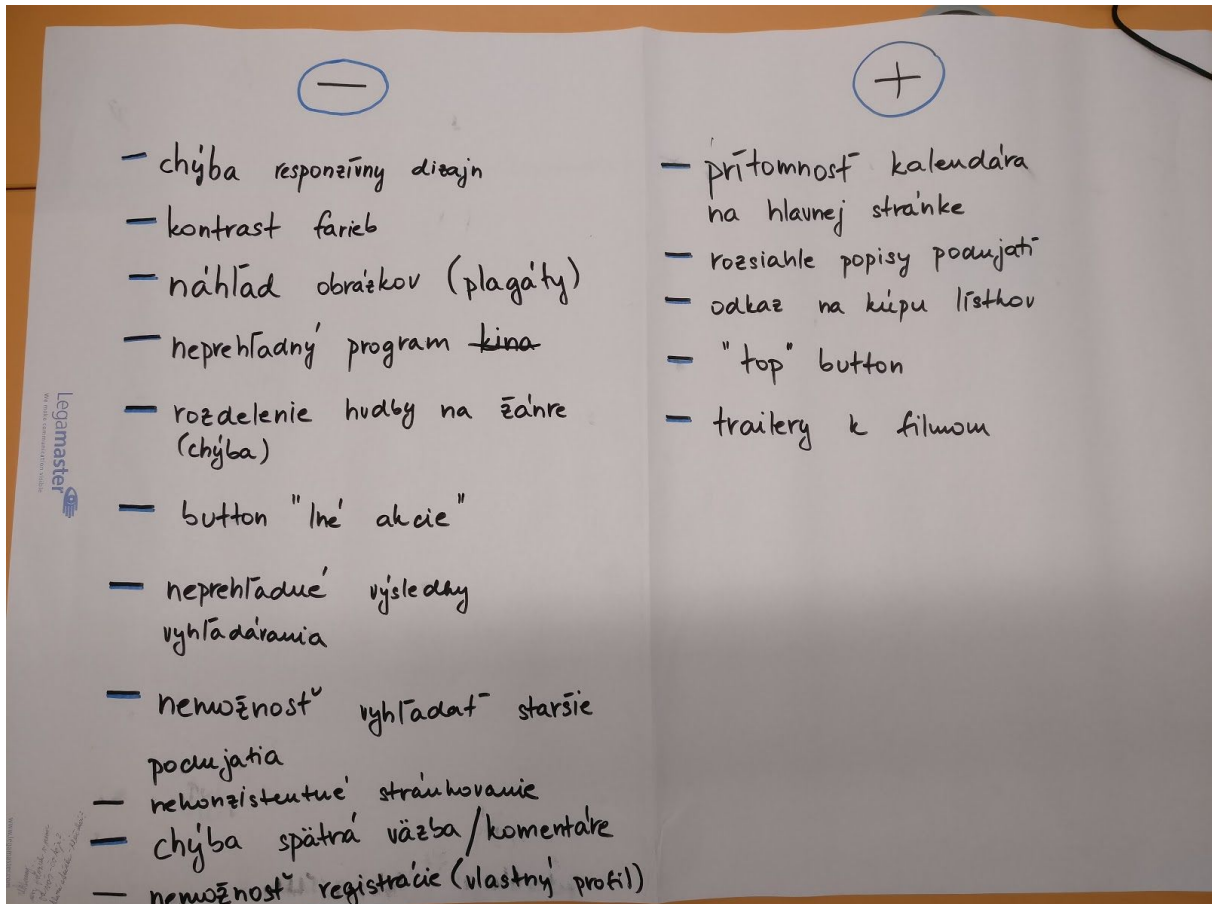 −
- chýba responzívny dizajn
- kontrast farieb
- náhľad obrázkov (plagáty)
- neprehľadný program kina
- rozdelenie hudby na žánre
(chýba)
- button "Iné akcie"
- neprehľadné výsledky
vyhľadávania
- nemožnosť vyhľadať staršie
podujatia
- nekonzistentné stránkovanie
- chýba spätná väzba/komentáre
- nemožnosť registrácie (vlastný profil)
+
- prítomnosť kalendára
na hlavnej stránke
- rozsiahle popisy podujatí
- odkaz na kúpu lístkov
- "top" button
- trailery k filmom
Legamaster